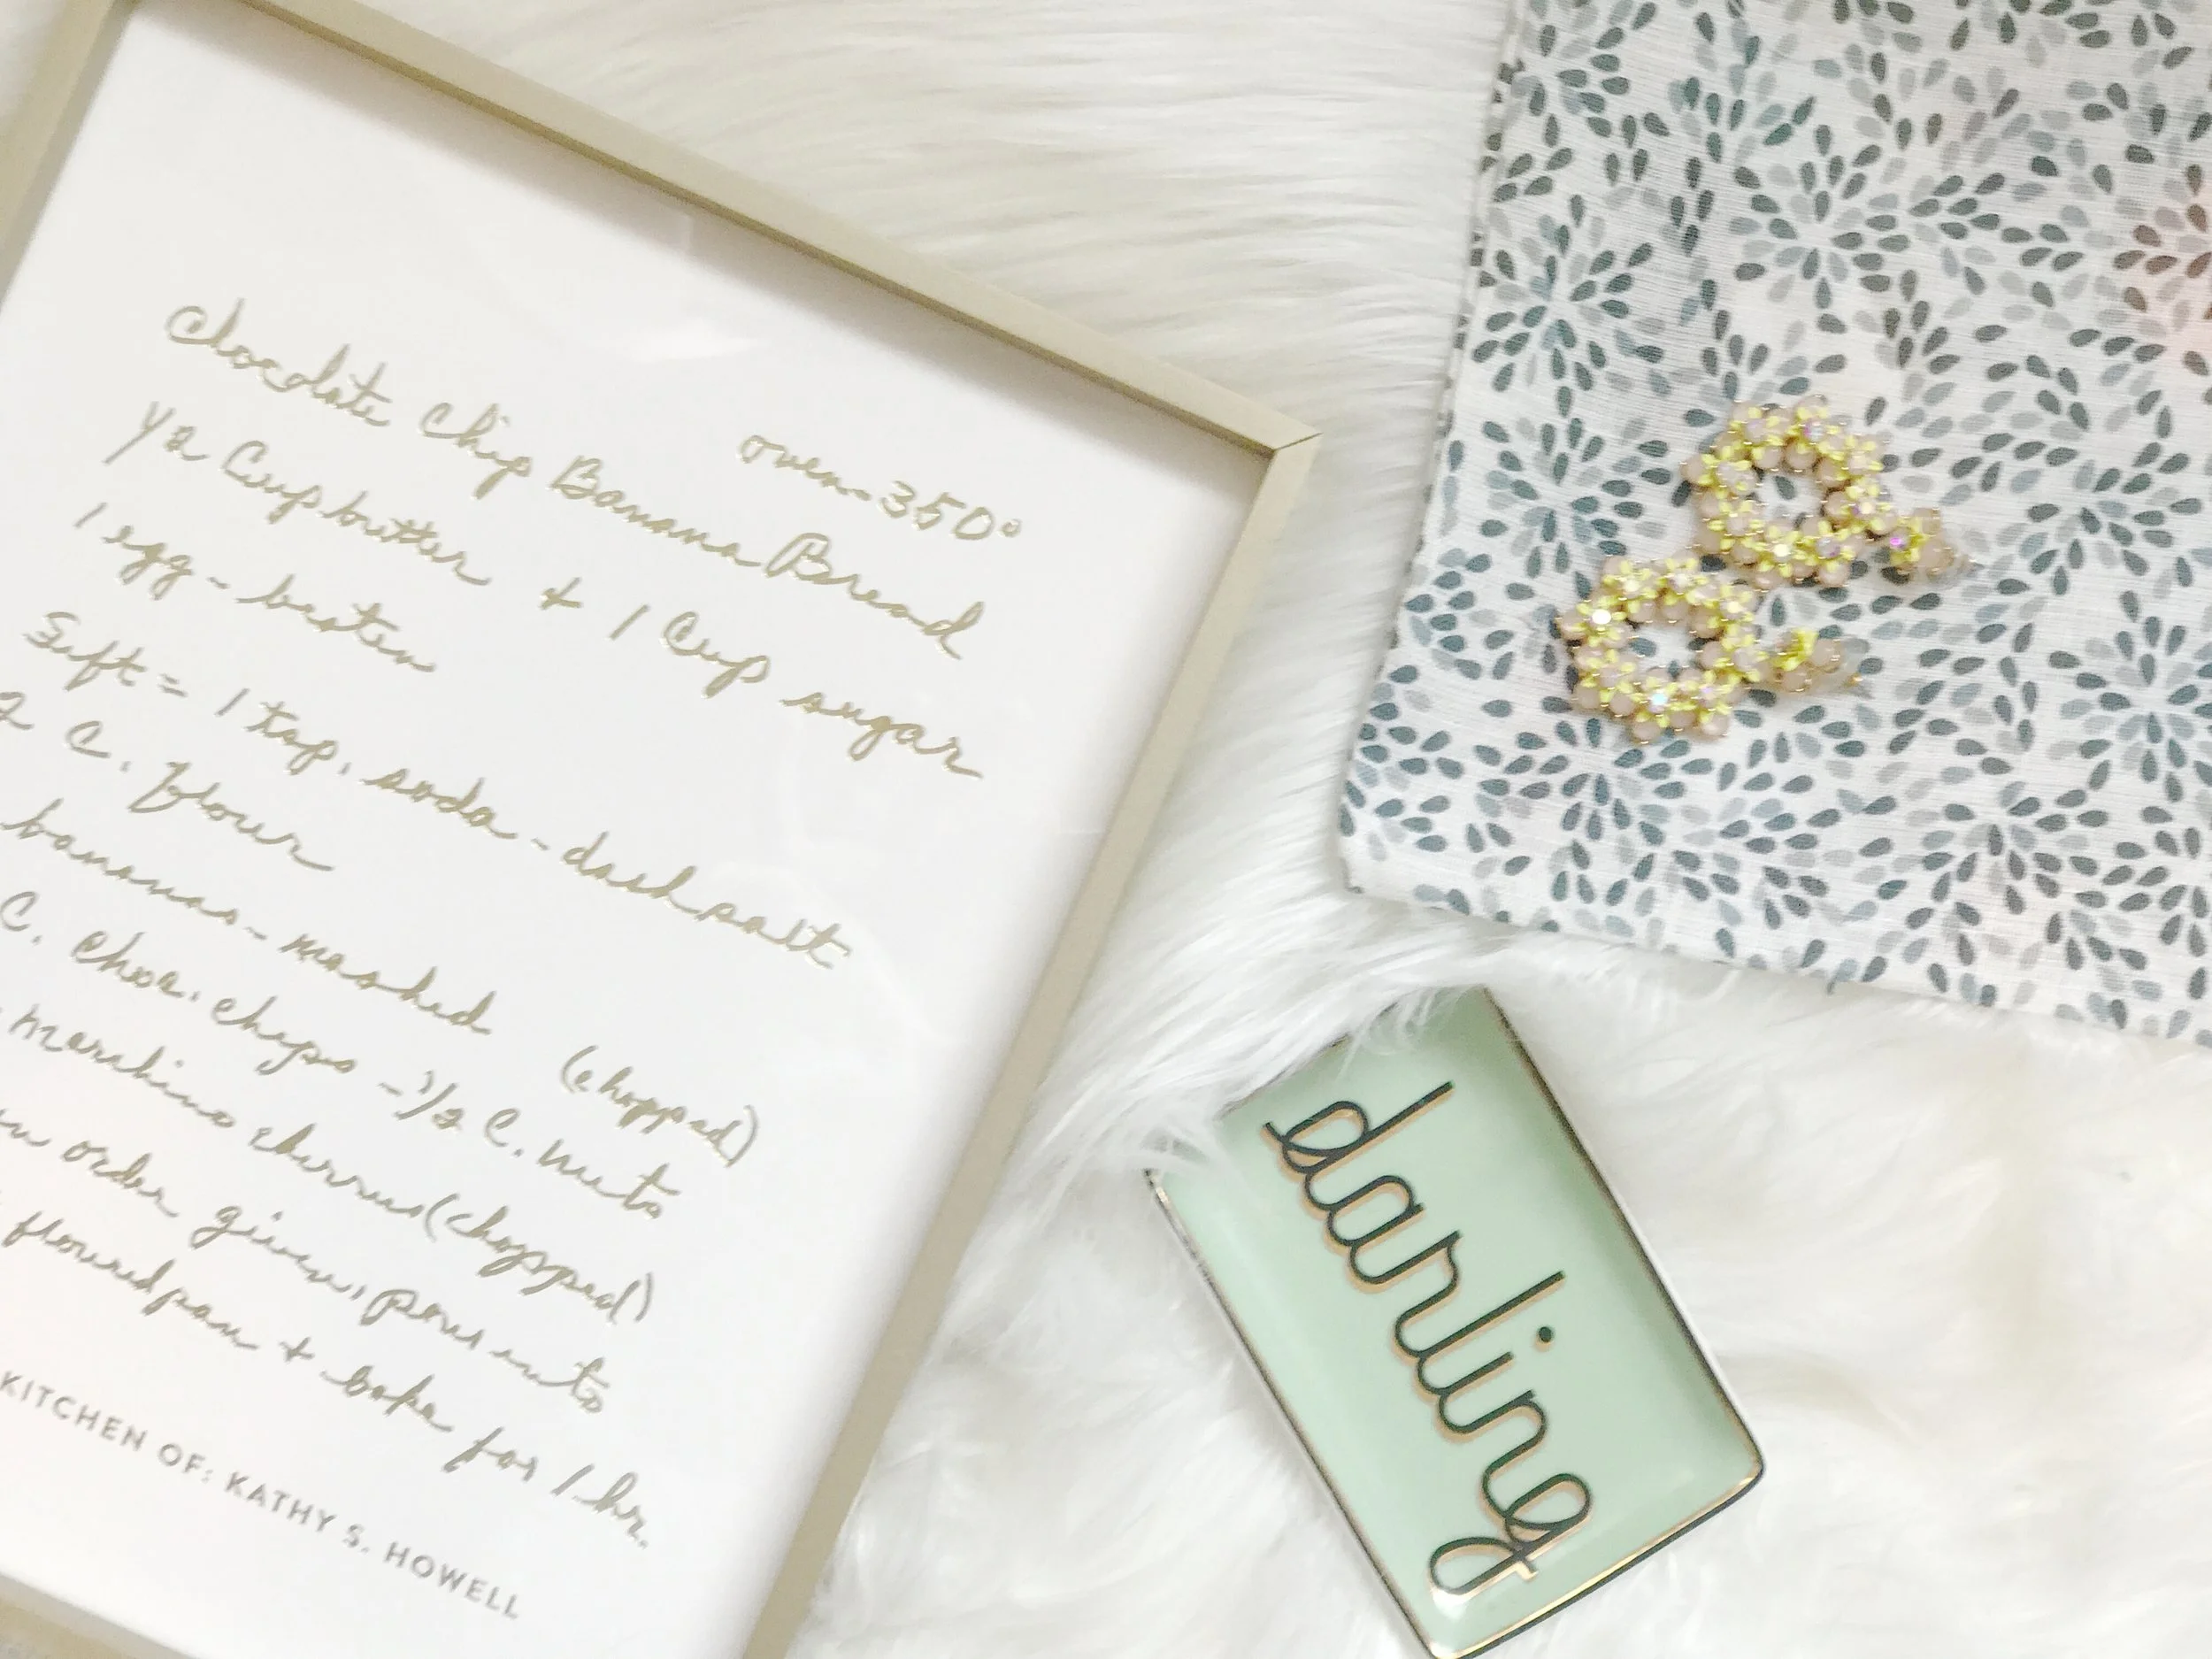 oven - 350°
Chocolate Chip Banana Bread
1/2 Cup butter + 1 Cup sugar
1 egg - beaten
Sift = 1 tsp. soda - dash salt
2 C. flour
bananas - mashed
(chopped)
C. choc. chips - 1/2 C. nuts
Marshino cherries (chopped)
order given, pour into
floured pan + bake for 1 hr.
KITCHEN OF: KATHY S. HOWELL
darling